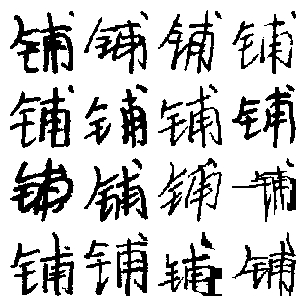 铺铺铺铺
铺铺铺铺
铺铺铺铺
铺铺铺铺